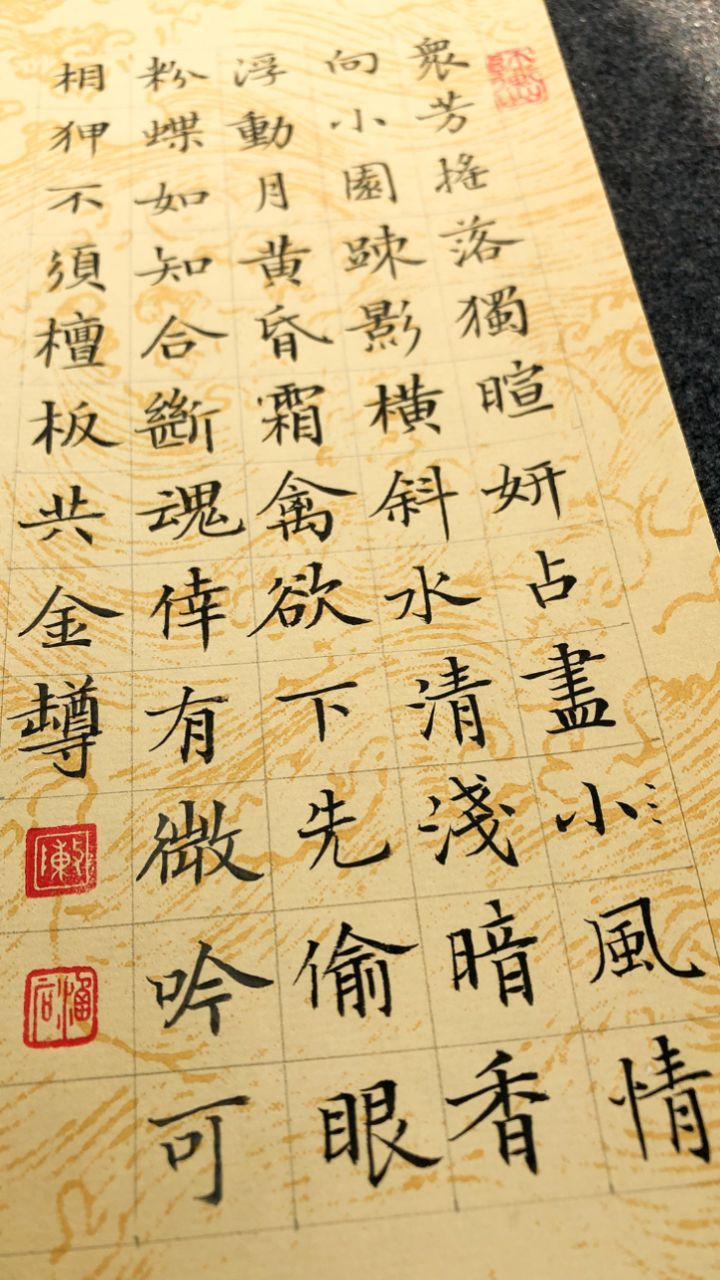 眾芳搖落獨暄妍占盡小風情
向小園踈影橫斜水清淺暗香
浮動月黃昏霜禽欲下先偷眼
粉蝶如知合斷魂倖有微吟可
相狎不須檀板共金罇